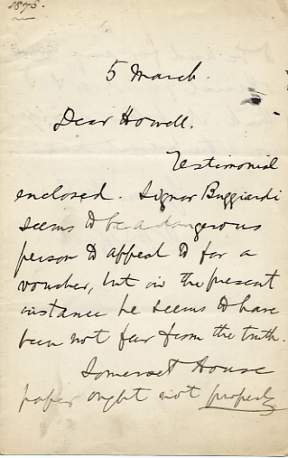 1875.
5 March.
Dear Howell.
Testimonial
enclosed. Signor Buggiardi
seems to be a dangerous
person to appeal to for a
voucher, but in the present
instance he seems to have
been not far from the truth.
Somerset House
paper ought not properly